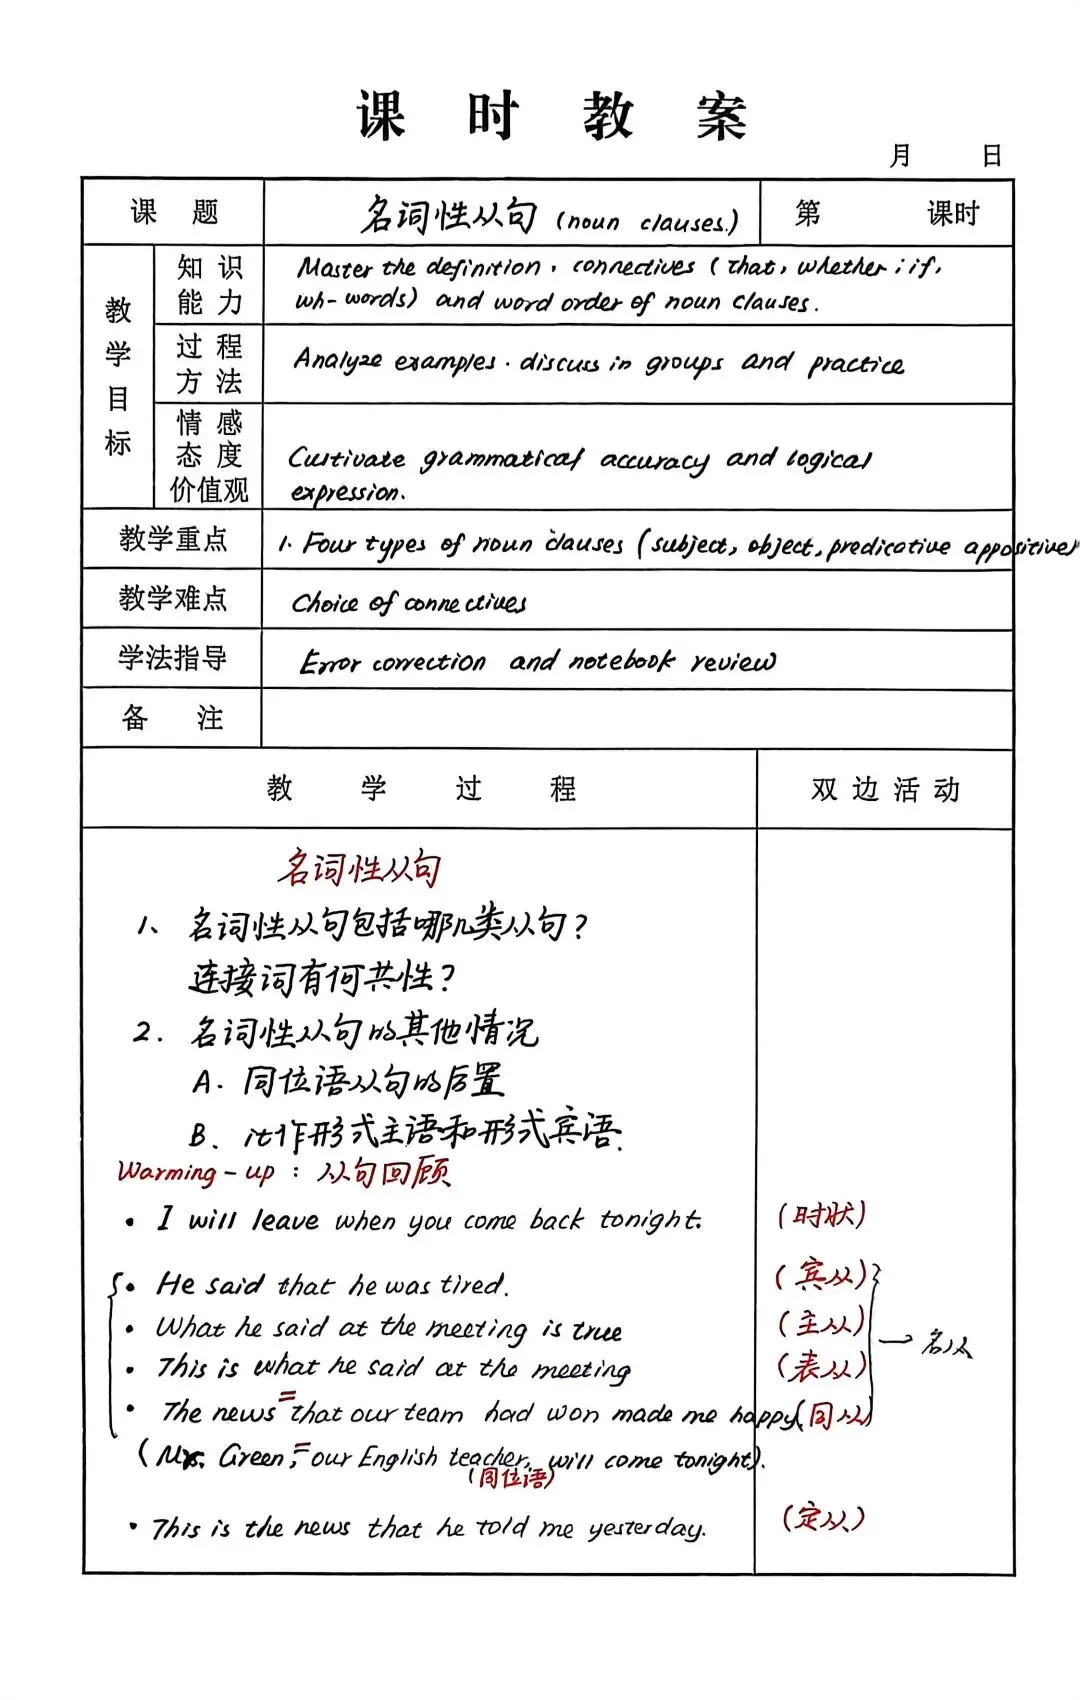 课 时 教 案
月 日
课 题 名词性从句 (noun clauses.) 第 课时
教学目标
知识能力 Master the definition, connectives (that, whether; if,
wh-words) and word order of noun clauses.
过程方法 Analyze examples. discuss in groups and practice
情感态度价值观 Cultivate grammatical accuracy and logical
expression.
教学重点 1. Four types of noun clauses (subject, object, predicative appositive)
教学难点 Choice of connectives
学法指导 Error correction and notebook review
备 注
教 学 过 程 双边活动
名词性从句
1、名词性从句包括哪几类从句?
连接词有何共性?
2. 名词性从句的其他情况
A. 同位语从句的后置
B. it作形式主语和形式宾语.
Warming-up : 从句回顾
• I will leave when you come back tonight. (时状)
• He said that he was tired. (宾从)
• What he said at the meeting is true (主从) → 名从
• This is what he said at the meeting (表从)
• The news = that our team had won made me happy. (同从)
(Mrs. Green, = our English teacher, will come tonight).
(同位语)
• This is the news that he told me yesterday. (定从)